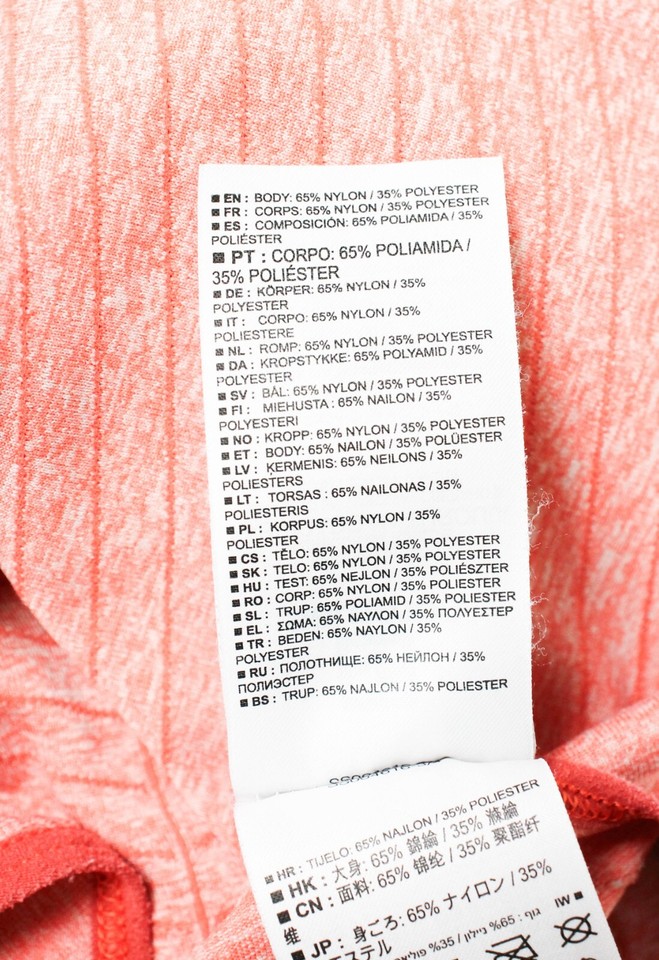 EN : BODY: 65% NYLON / 35% POLYESTER
FR : CORPS: 65% NYLON / 35% POLYESTER
ES : COMPOSICIÓN: 65% POLIAMIDA / 35%
POLIÉSTER
PT : CORPO: 65% POLIAMIDA /
35% POLIÉSTER
DE : KÖRPER: 65% NYLON / 35%
POLYESTER
IT : CORPO: 65% NYLON / 35%
POLIESTERE
NL : ROMP: 65% NYLON / 35% POLYESTER
DA : KROPSTYKKE: 65% POLYAMID / 35%
POLYESTER
SV : BÅL: 65% NYLON / 35% POLYESTER
FI : MIEHUSTA : 65% NAILON / 35%
POLYESTERI
NO : KROPP: 65% NYLON / 35% POLYESTER
ET : BODY: 65% NAILON / 35% POLÜESTER
LV : ĶERMENIS: 65% NEILONS / 35%
POLIESTERS
LT : TORSAS : 65% NAILONAS / 35%
POLIESTERIS
PL : KORPUS: 65% NYLON / 35%
POLIESTER
CS : TĚLO: 65% NYLON / 35% POLYESTER
SK : TELO: 65% NYLON / 35% POLYESTER
HU : TEST: 65% NEJLON / 35% POLIÉSZTER
RO : CORP: 65% NYLON / 35% POLIESTER
SL : TRUP: 65% POLIAMID / 35% POLIESTER
EL : ΣΩΜΑ: 65% ΝΑΥΛΟΝ / 35% ΠΟΛΥΕΣΤΕΡ
TR : BEDEN: 65% NAYLON / 35%
POLYESTER
RU : ПОЛОТНИЩЕ: 65% НЕЙЛОН / 35%
ПОЛИЭСТЕР
BS : TRUP: 65% NAJLON / 35% POLIESTER
HR : TIJELO: 65% NAJLON / 35% POLIESTER
HK : 大身: 65% 錦綸 / 35% 滌綸
CN : 面料: 65% 锦纶 / 35% 聚酯纤
维
JP : 身ごろ: 65% ナイロン / 35%
エステル
IW גוף : 65% ניילון / 35%